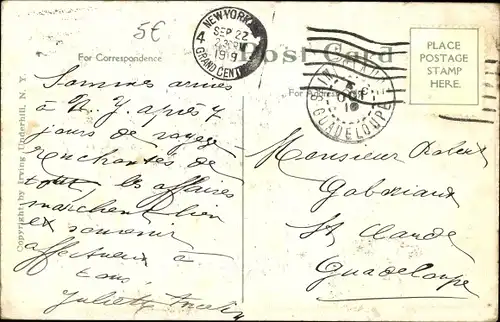 5€
NEW YORK, N.Y.
SEP 22
1919
4
GRAND CENT
Post Card
For Correspondence
For Address
PLACE
POSTAGE
STAMP
HERE.
OCT
19
GUADELOUPE
Copyright by Irving Underhill, N. Y.
Sommes arrivés
à N. Y. après 7
jours de voyage
enchantés de
tout, les affaires
marchent bien
et souvenir
affectueux à
tous,
Juliette
Monsieur Robert
St Claude
Guadeloupe